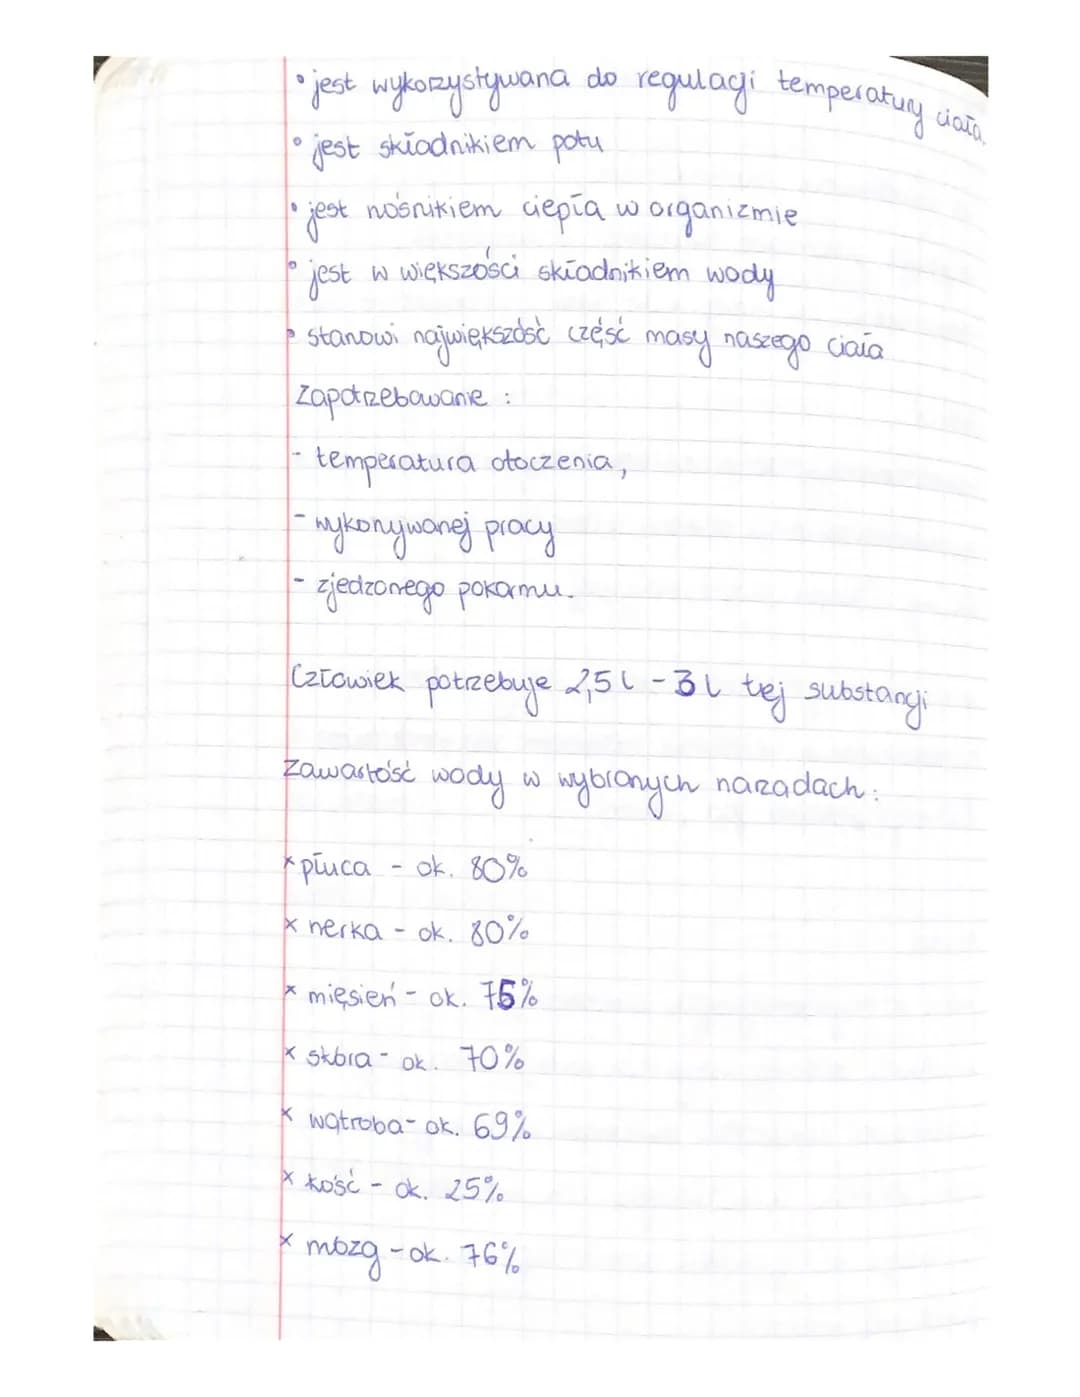 • jest wykorzystywana do regulacji temperatury ciała.
• jest składnikiem potu
• jest nośnikiem ciepła w organizmie
• jest w większości składnikiem wody
• stanowi największość część masy naszego ciała
Zapotrzebowanie :
- temperatura otoczenia,
- wykonywanej pracy
- zjedzonego pokarmu.
Człowiek potrzebuje 2,5 l - 3 l tej substancji
Zawartość wody w wybranych narządach:
x płuca - ok. 80%
x nerka - ok. 80%
x mięsień - ok. 75%
x skóra - ok. 70%
x wątroba - ok. 69%
x kość - ok. 25%
x mózg - ok. 76%